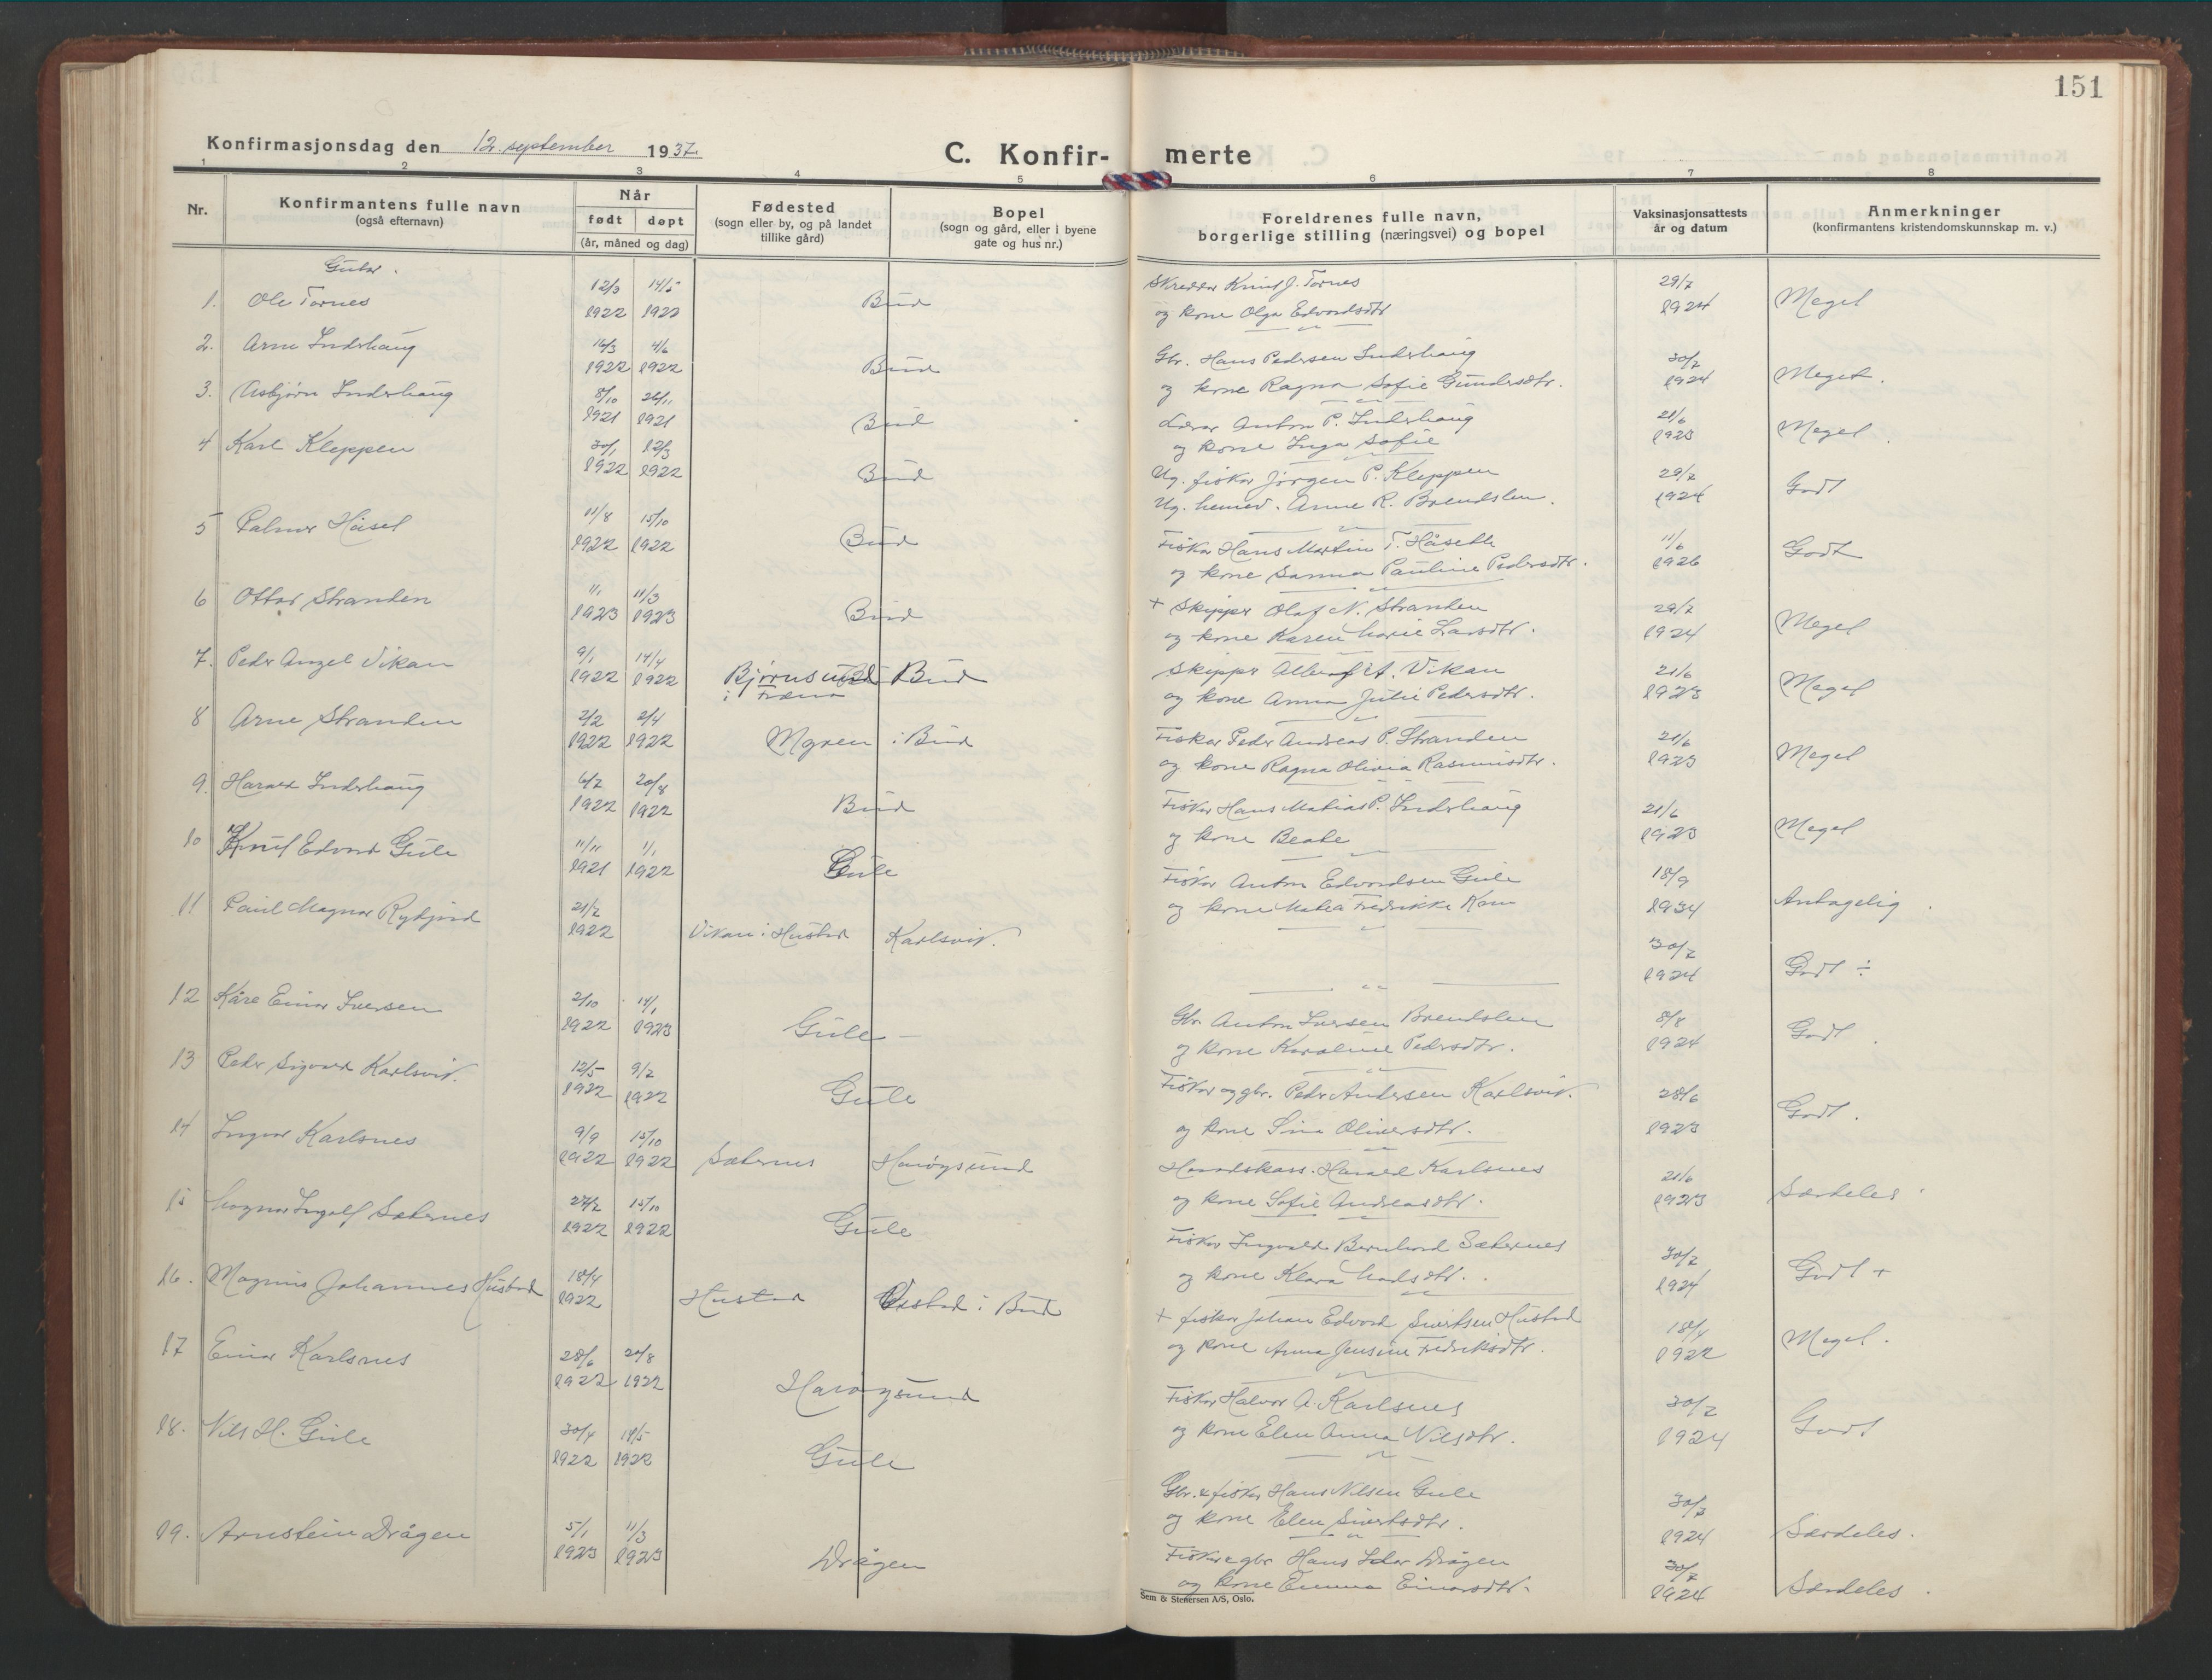 151
Konfirmasjonsdag den 12. september 1937.
C. Konfir- merte
1 2 3 4 5 6 7 8
Nr.
Konfirmantens fulle navn
(også efternavn)
Når
født døpt
(år, måned og dag)
Fødested
(sogn eller by, og på landet
tillike gård)
Bopel
(sogn og gård, eller i byene
gate og hus nr.)
Foreldrenes fulle navn,
borgerlige stilling (næringsvei) og bopel
Vaksinasjonsattests
år og datum
Anmerkninger
(konfirmantens kristendomskunnskap m. v.)
Gutar.
1. Ole Tornes 12/3 1922 14/5 1922 Bud
Skreddar Knut J. Tornes
og kone Olga Edvardsdtr
29/7 1924 Meget
2. Arne Inderhaug 16/3 1922 4/6 1922 Bud
Gbr. Hans Pedersen Inderhaug
og kone Ragna Sofie Gundersdtr.
30/7 1924 Meget.
3. Asbjørn Inderhaug 8/10 1921 26/11 1921 Bud
Lærar Anton P. Inderhaug
og kone Inga Sofie
21/6 1923 Meget.
4 Karl Kleppen 30/1 1922 12/3 1922 Bud
Ug. fiskar Jørgen P. Kleppen
Ug. Anne R. Brendslen.
29/7 1924 Godt
5 Palmer Håsel 11/8 1922 15/10 1922 Bud
Fiskar Hans Martin T. Håseth
og kone Sanna Pauline Pedersdtr.
11/6 1926 Godt
6 Ottar Stranden 1923 11/3 1923 Bud
+ Skipper Olaf N. Stranden
og kone Karen Marie Larsdtr.
29/7 1924 Meget
7. Peder Vikan 9/1 1922 14/4 1922 Bjørnsund i Fræna Bud
Skipper Vikan
og kone Anna Julie Pedersdtr.
21/6 1923 Meget
8 Arne Stranden 2/2 1922 2/4 1922 Myren i Bud
Fiskar Peder Andreas P. Stranden
og kone Ragna Olivia Rasmusdtr.
21/6 1923 Meget
9. Harald Inderhaug 6/7 1922 20/8 1922 Bud
Fiskar Hans Matias P. Inderhaug
og kone Beate
21/6 1923 Meget
10 Knut Edvard Gule 11/11 1921 1/1 1922 Gule
Fiskar Anton Edvardsen Gule
og kone Matea Fredrikke
18/9 1934 Antagelig.
11 Paul Magnar 21/7 1922 Vikan i Hustad Karlsvik.
30/7 1924 Godt ÷
12 Kåre Einar Iversen 2/10 1922 14/1 1923 Gule
Gbr. Anton Iversen Brendslen
og kone Karoline Pedersdtr.
8/8 1924 Godt.
13 Peder Sigvard Karlsvik. 12/5 1922 9/7 1922 Gule
Fiskar og gbr. Peder Andersen Karlsvik.
og kone Sina Oliversdtr.
28/6 1923 Godt.
14 Ingvar Karlsnes 9/9 1922 15/10 1922 Sæternes Harøysund
Harald Karlsnes
og kone Sofie Andreasdtr.
21/6 1923 Særdeles.
15 Magnar Ingolf Sæternes 27/7 1922 15/10 1922 Gule
Fiskar Ingvald Bernhard Sæternes
og kone Klara Madsdtr.
30/7 1924 Godt +
16. Magnus Johannes Hustad 18/4 1922 Hustad i Bud
+ fiskar Johan Edvard Sivertsen Hustad
og kone Anna Jensine Fredriksdtr.
18/4 1922 Meget.
17 Einar Karlsnes 28/6 1922 1922 Harøysund
Fiskar Halvor A. Karlsnes
og kone Elen Anna Nilsdtr.
30/7 1924 Godt
18. Nils H. Gule 30/4 1922 14/5 1922 Gule
Gbr. & fiskar Hans Nilsen Gule
og kone Elen Sivertsdtr.
30/7 1924 Særdeles.
19. Arnstein Drågen 5/1 1923 11/3 1923 Drågen
Fiskar & gbr Hans Peder Drågen
og kone Emma Einarsdtr.
30/7 1924 Særdeles.
Sem & Stenersen A/S, Oslo.